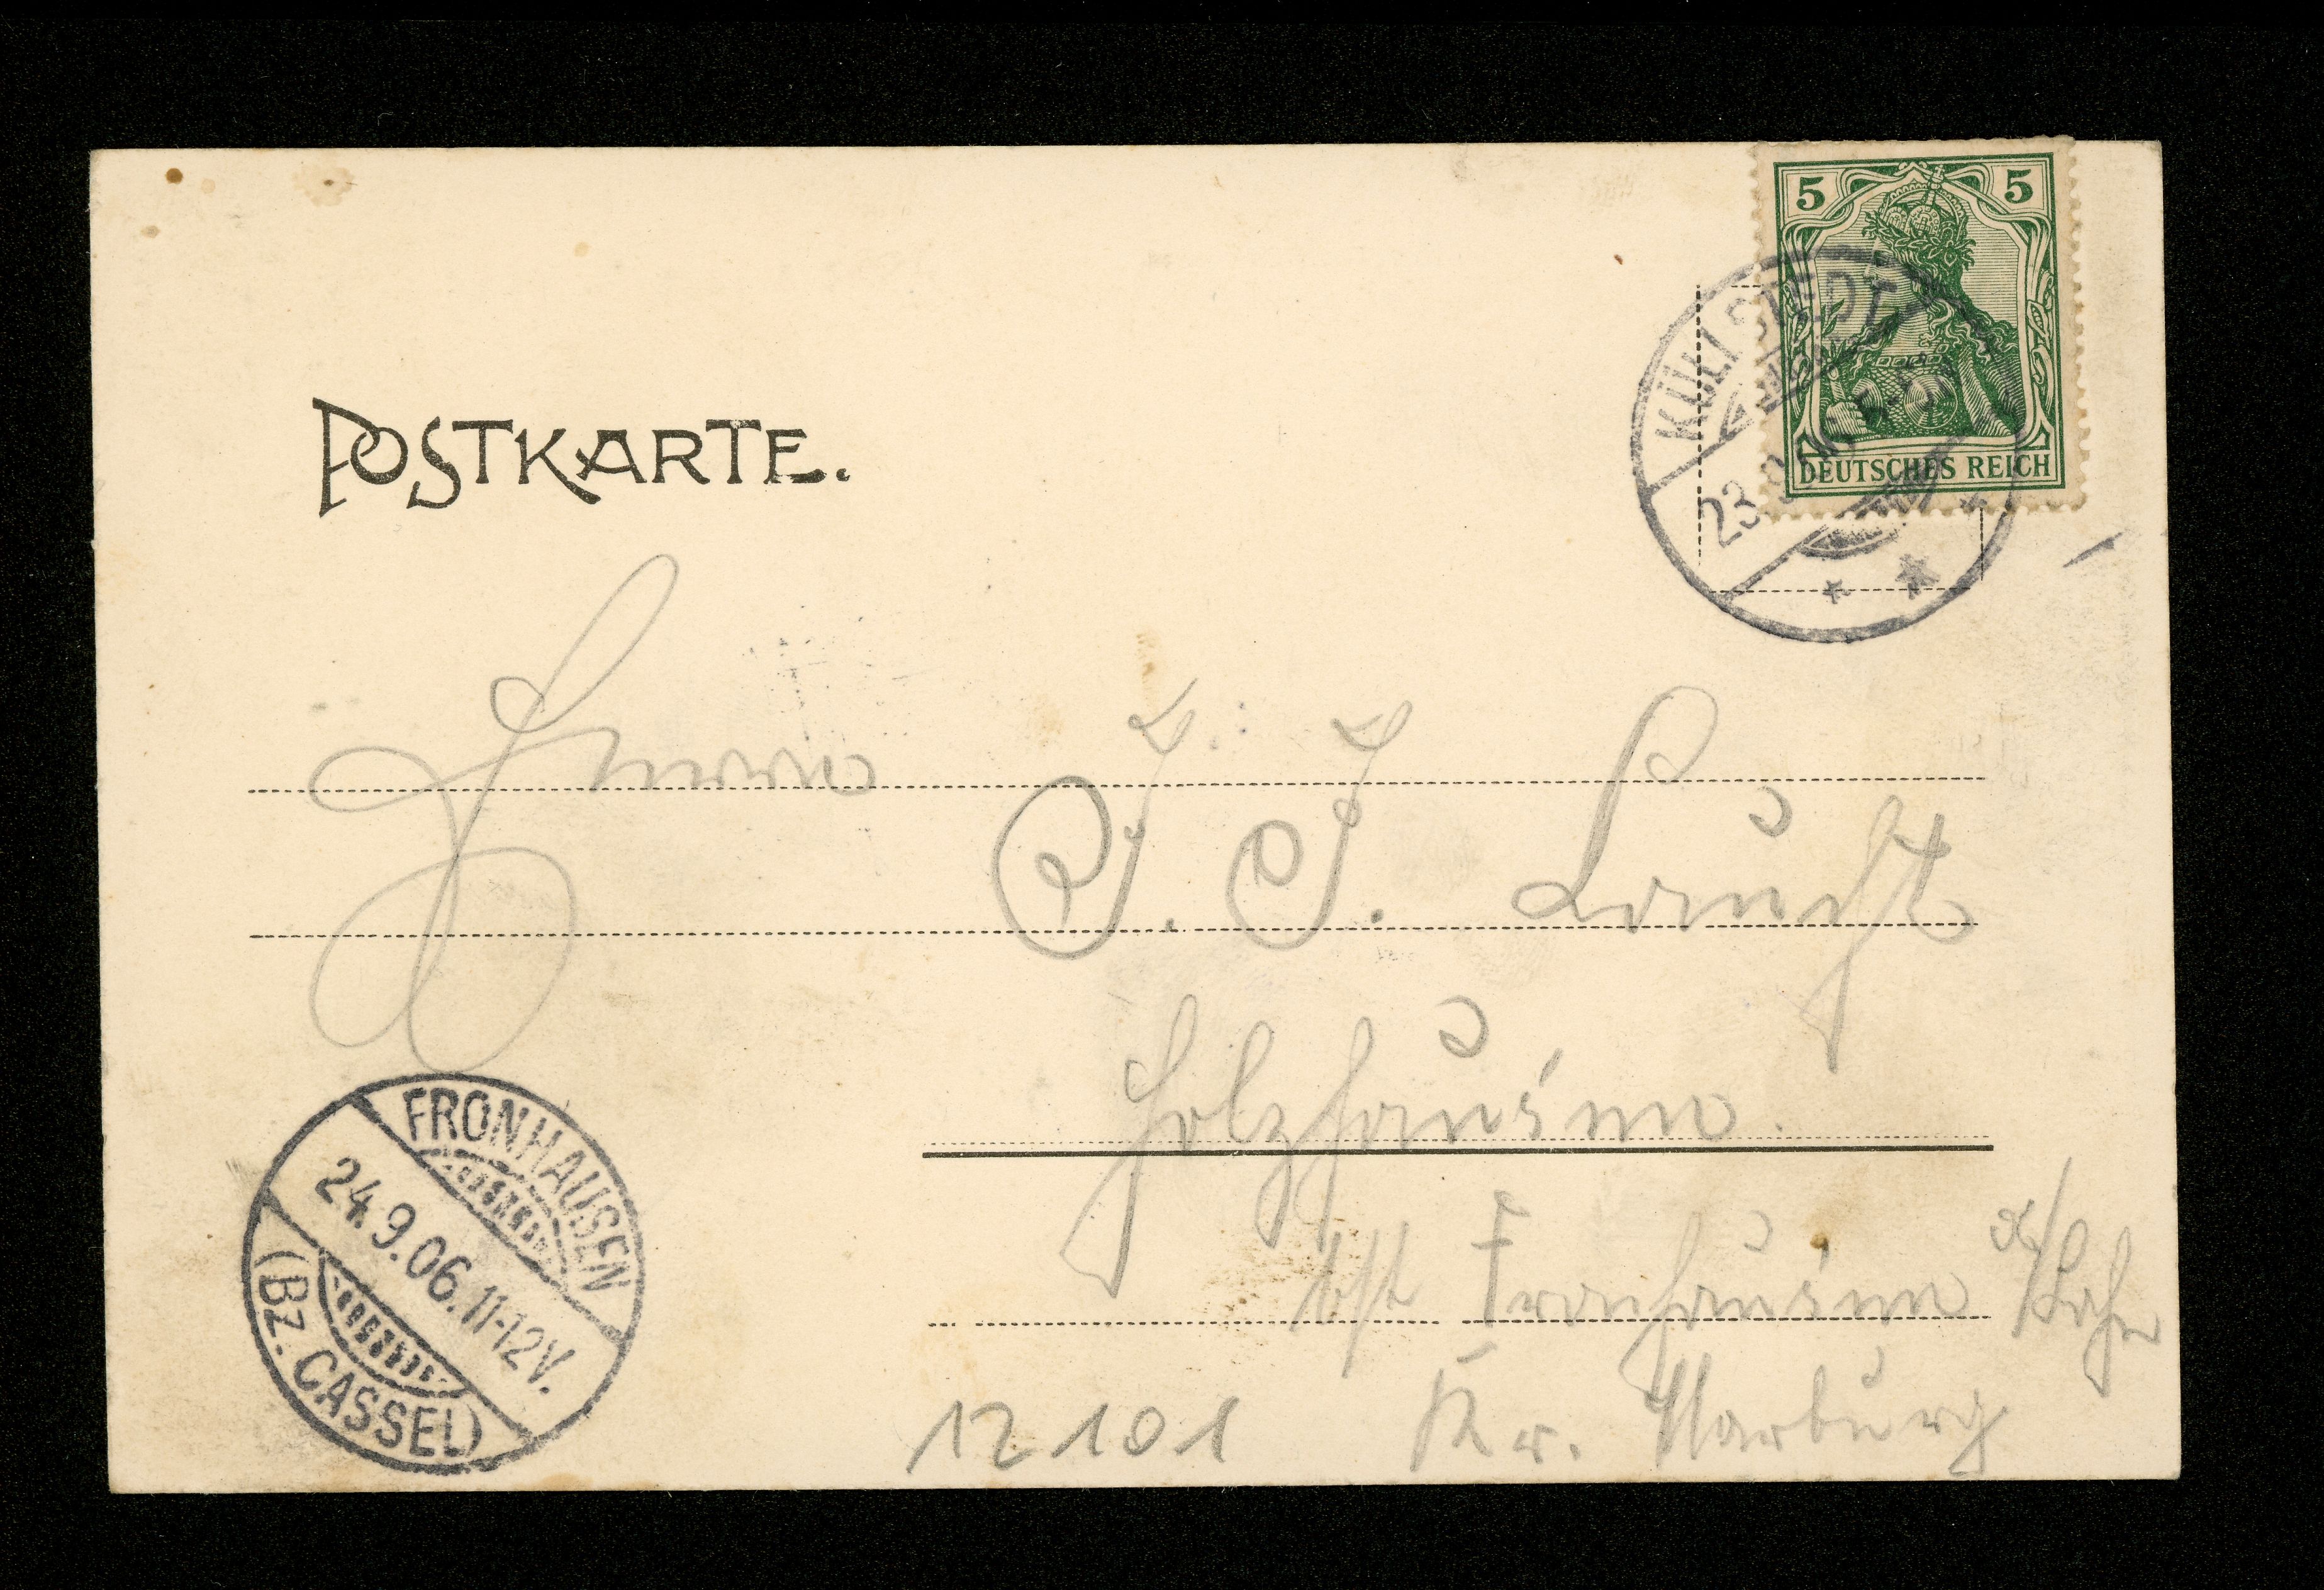 5 5
DEUTSCHES REICH
KÜLLSTEDT
23. 9.
POSTKARTE.
Herrn
J. J. Laucht
Holzhausen.
FRONHAUSEN
24.9.06. 11-12V.
(BZ. CASSEL)
Fronhausen a/Lahn
12101 Kr. Marburg